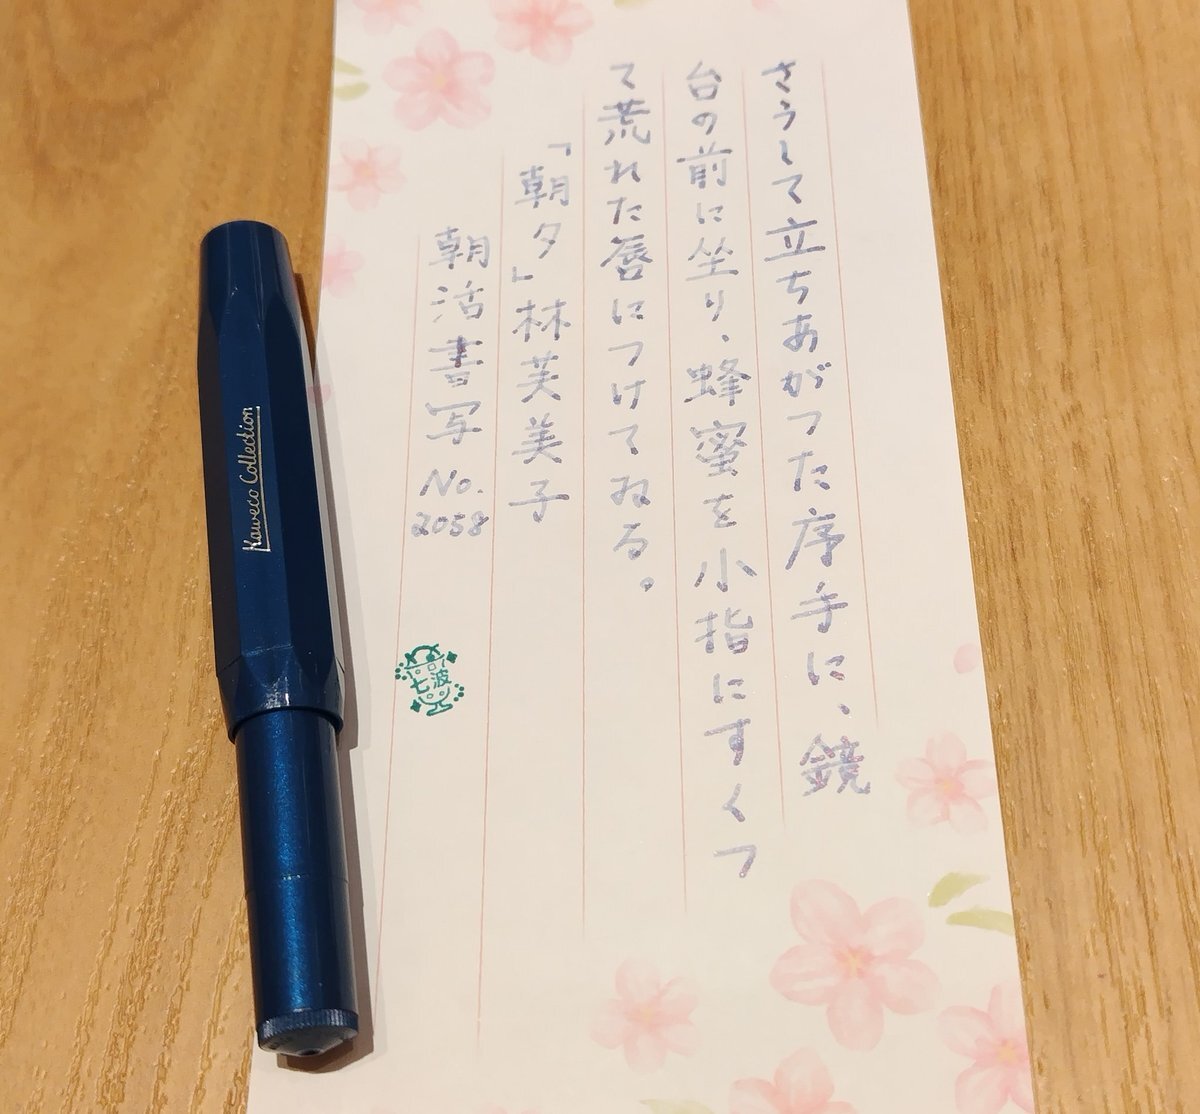 さうして立ちあがつた序手に、鏡
台の前に坐り、蜂蜜を小指にすくつ
て荒れた唇につけてゐる。
「朝夕」林芙美子
朝活書写 No.
2058
七波
Kaweco Collection